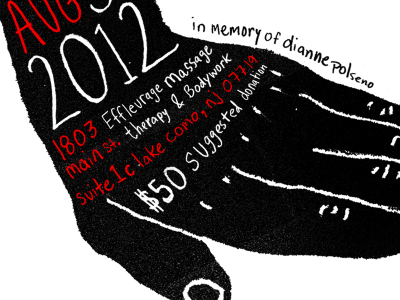 in memory of dianne polseno
AUG
2012
Effleurage massage
therapy & Bodywork
1803
main st.
suite 1c lake como, NJ 07719
$50 suggested donation